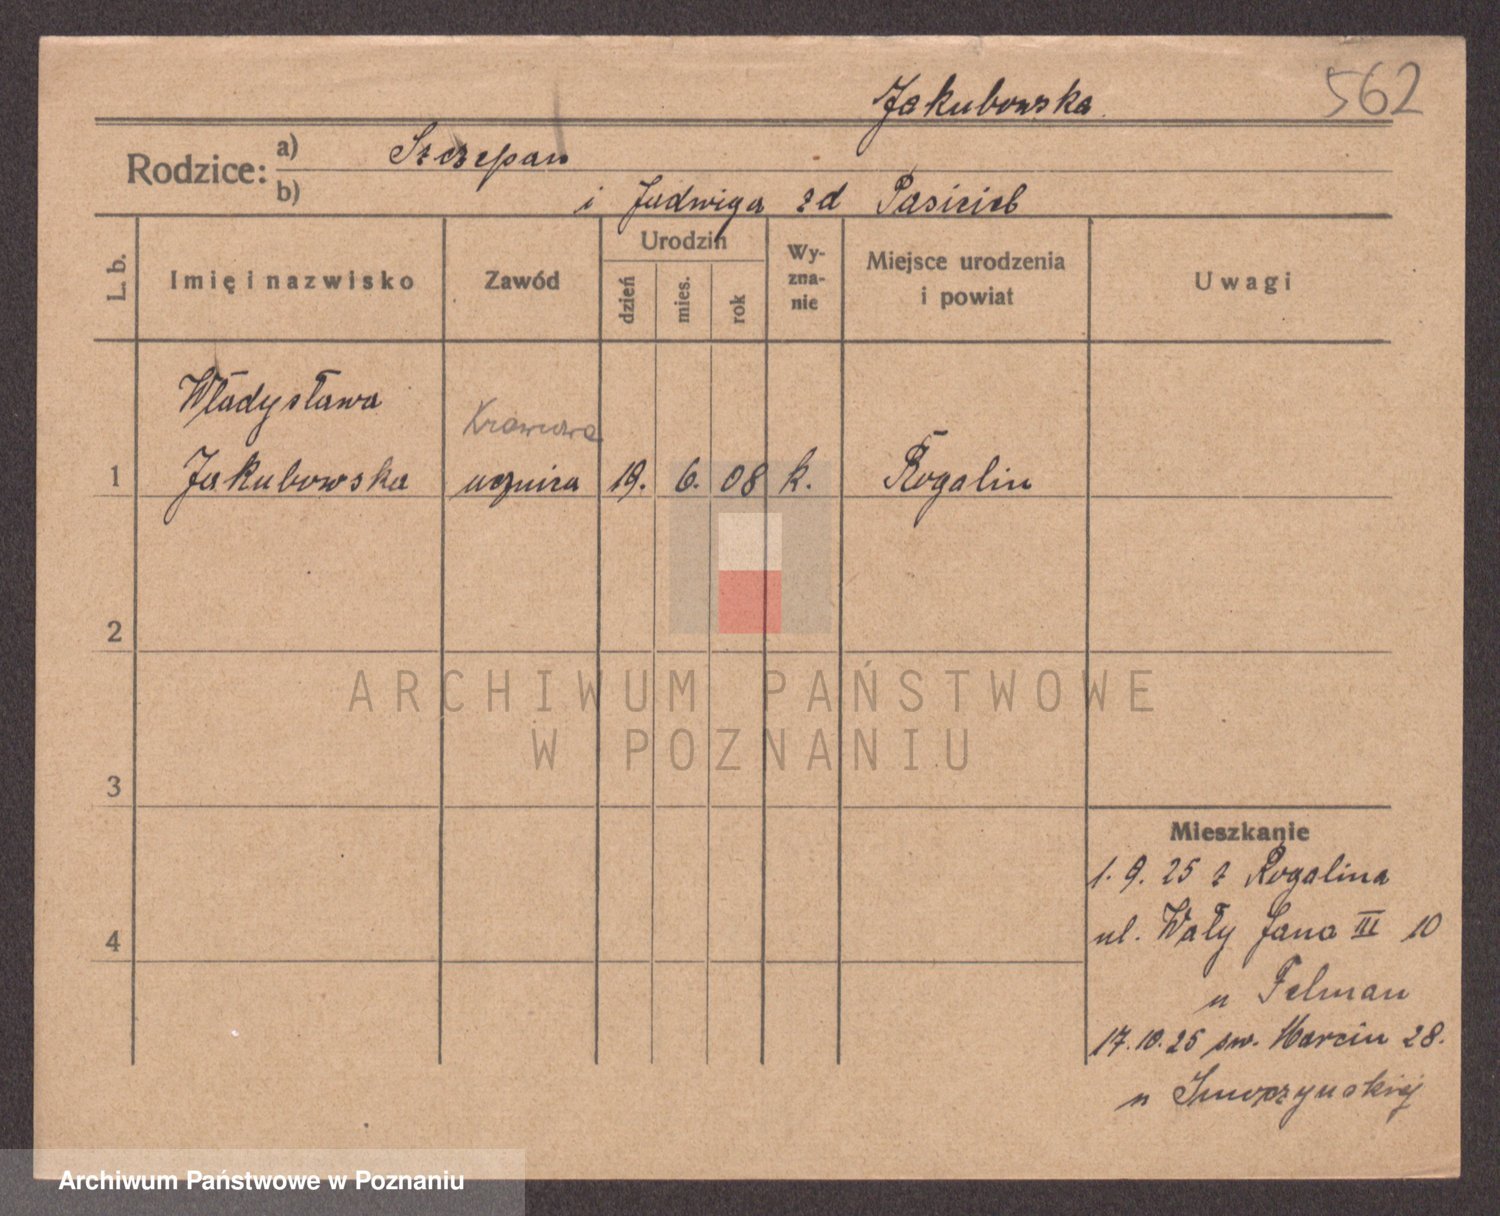 562
Jakubowska
Rodzice: a) Szczepan
b) i Jadwiga zd Pasicieb
L. b. Imię i nazwisko Zawód Urodzin Wy-zna-nie Miejsce urodzenia i powiat Uwagi
dzień mies. rok
Władysława
Krawcowa
1 Jakubowska ucznica 19. 6. 08 k. Rogalin
2
ARCHIWUM PAŃSTWOWE
W POZNANIU
3
Mieszkanie
1. 9. 25 z Rogalina
4 ul. Wały Jana III 10
u Felman
17. 10. 25 św. Marcin 28.
u
Archiwum Państwowe w Poznaniu